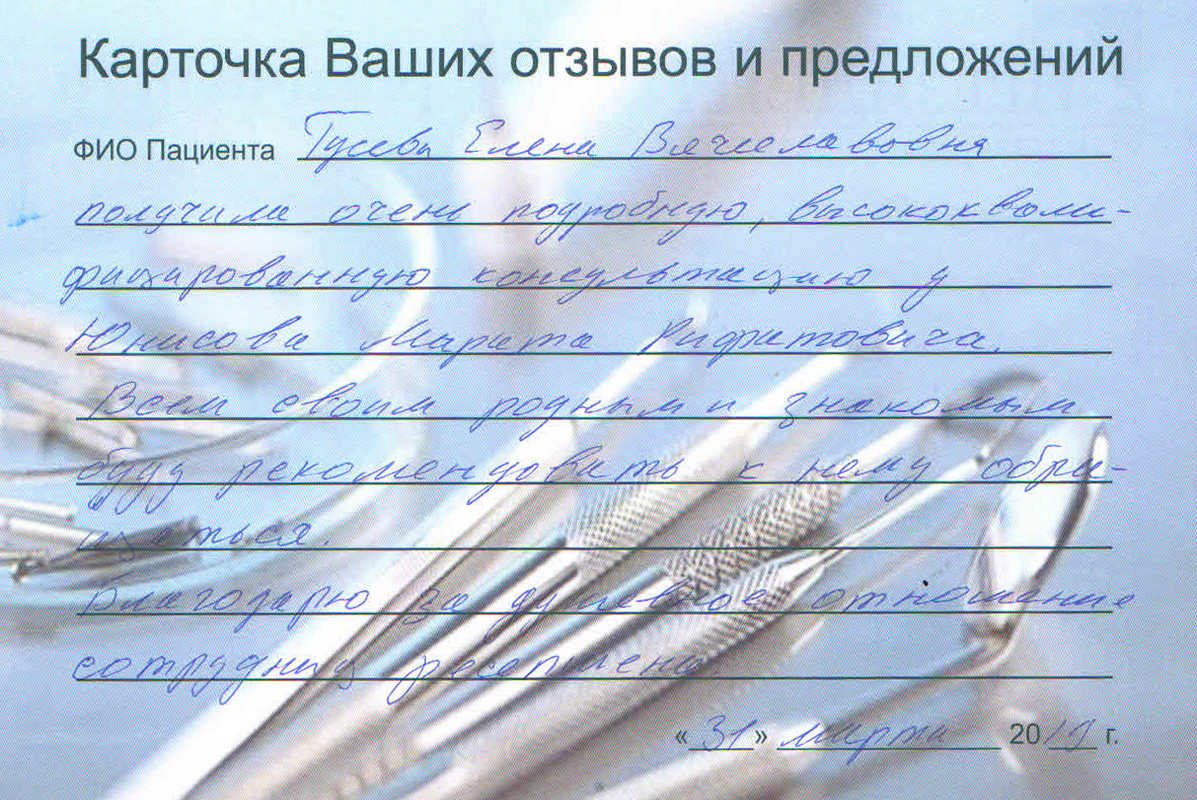 Карточка Ваших отзывов и предложений
ФИО Пациента Гусева Елена Вячеславовна
получила очень подробную, высококвали-
фицированную консультацию у
Юнисова Марата Рифатовича.
Всем своим родным и знакомым
буду рекомендовать к нему обра-
щаться.
Благодарю за душевное отношение
сотрудниц
«31» марта 2019 г.